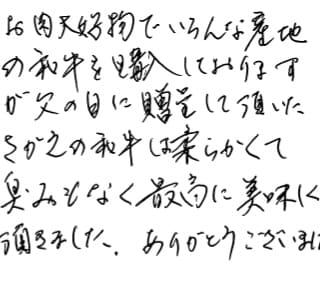 お肉大好物でいろんな産地
の和牛を購入しております
が父の日に贈呈して頂いた
さがえの和牛は柔らかくて
臭みもなく最高に美味しく
頂きました。ありがとうございまし